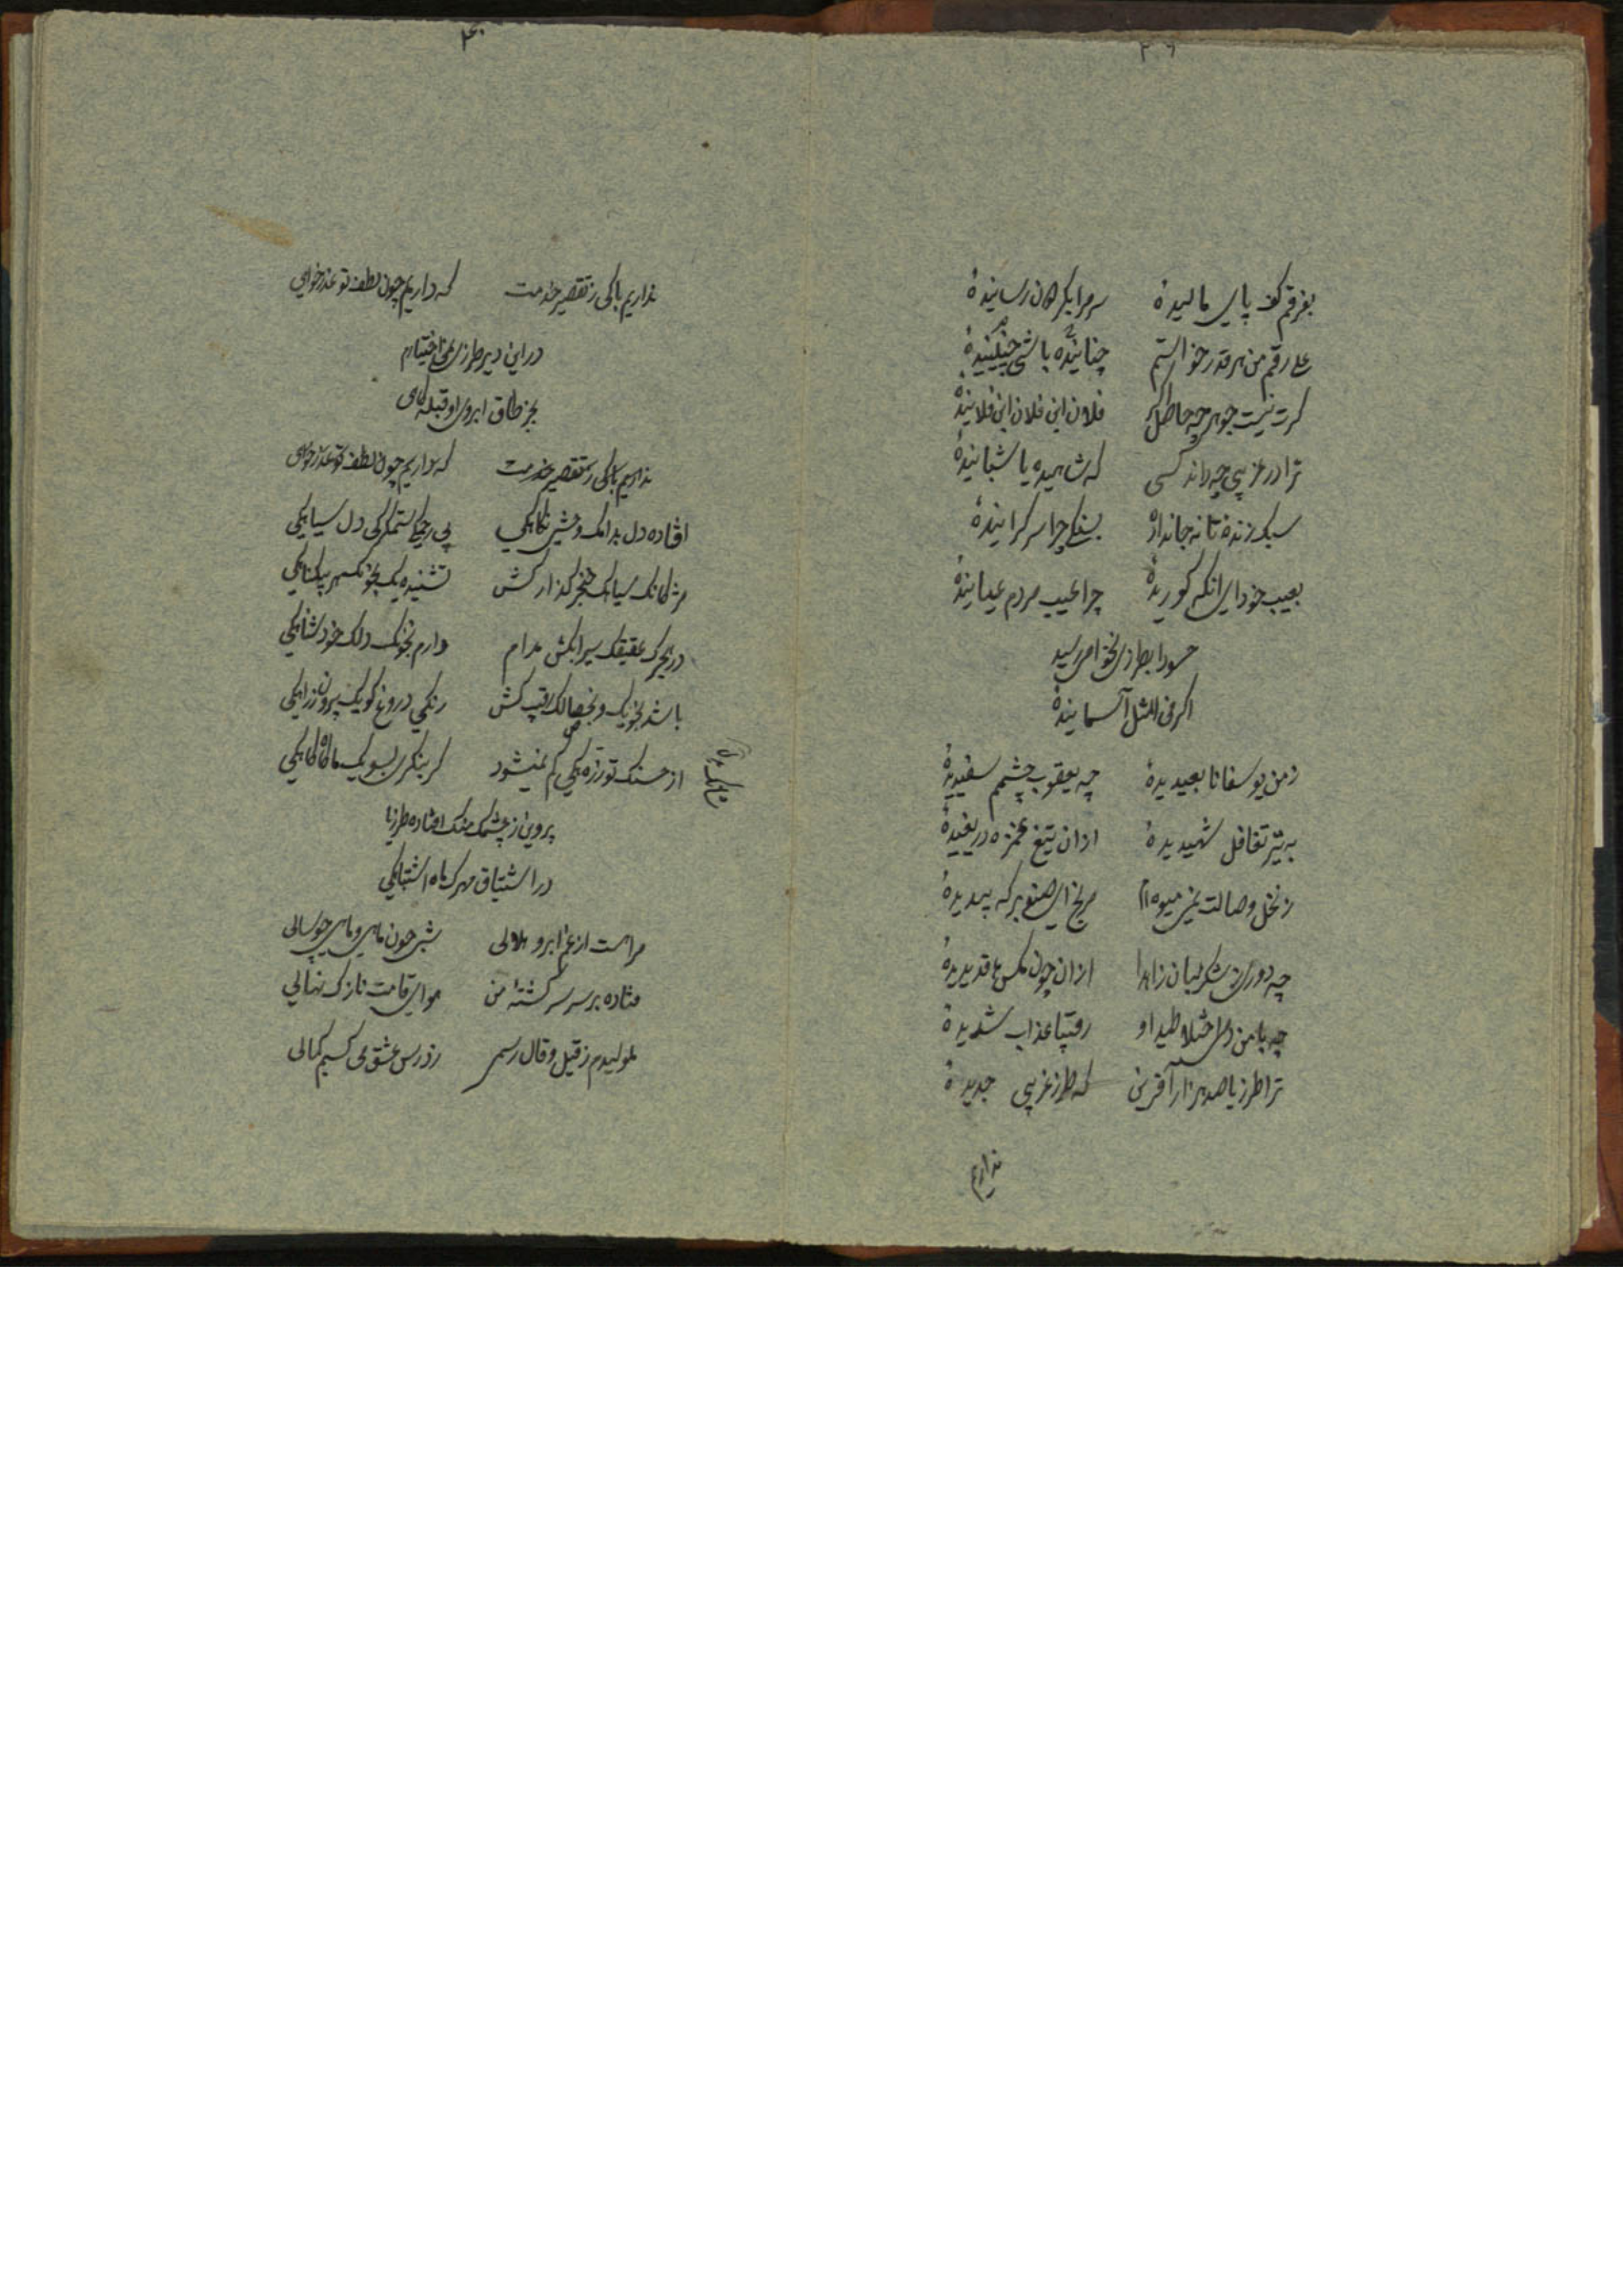 ۳۹
بفرقم کف پای مالیدهٔ
سر مرا بکرهان رسانیدهٔ
علی رقم من هر قدر خواستم
چنانیدهٔ باشی چنینیدهٔ
کرت نیست جوهر چه حاصل که
فلان ابن فلان ابن فلانیدهٔ
ترا در غریبی چه داند کسی
که شاهیده یا شبانیدهٔ
سبک زندهٔ تا نه جاندادهٔ
بسنگی چرا سر کرانیدهٔ
بعیب خود ای آنکه کوریدهٔ
چرا عیب مردم عیانیدهٔ
حسودا بطرزی نخواهی رسید
اکر فی المثل آسمانیدهٔ
ز من یوسفا تا بعیدیدهٔ
چه یعقوب چشمم سفیدیدهٔ
به تیر تغافل شهیدیدهٔ
ازان تیغ غمزه دریغیدهٔ
ز نخل وصالت نمی میوه‌ام
مرنج ای صنوبر که بیدیدهٔ
چه دوری ز شکرلبان زاهدا
ازان چون مکس‌ها قدیدیدهٔ
چه با من دلی اختلاطید او
رقیبا عذاب شدیدیدهٔ
ترا طرزیا صد هزار آفرین
که طرز غریبی جدیدیدهٔ
نداریم
۴۰
نداریم باکی ز تقصیر خدمت
که داریم چون لطف تو عذرخواهی
در این دیر طرزی نمی‌اختیارم
بجز طاق ابروی او قبله‌گاهی
نداریم باکی ز تقصیر خدمت
که داریم چون لطف تو عذرخواهی
افتاده دل بدامک وحشی نگاهکی
بی رحمکی ستمگرکی دل سیاهکی
مژگانک سیاهک خنجر گذارکش
تشنیده یک بخونک هر بیگناهکی
در هجرک عقیقک سیرابکش مدام
دارم بخونک دلک خود شناهکی
باشد بخویک و بخصالک رقیبکش
رنگی دروغ‌گویک پیرون زراهکی
از حسنک تو ذره‌یکی کم نمیشود
کر بنگری بسویک ما گاه گاهکی
پروین ز چشمک منک افتاده طرزیا
در اشتیاق مهرک ماه اشتباهکی
مراست از غم ابرو هلالی
شبی چون ماهی و ماهی چو سالی
فتاده بر سر سرگشتهٔ من
هوای قامت نازک نهالی
ملولیدم ز قیل و قال رسمی
ز درس عشق می‌کسبم کمالی